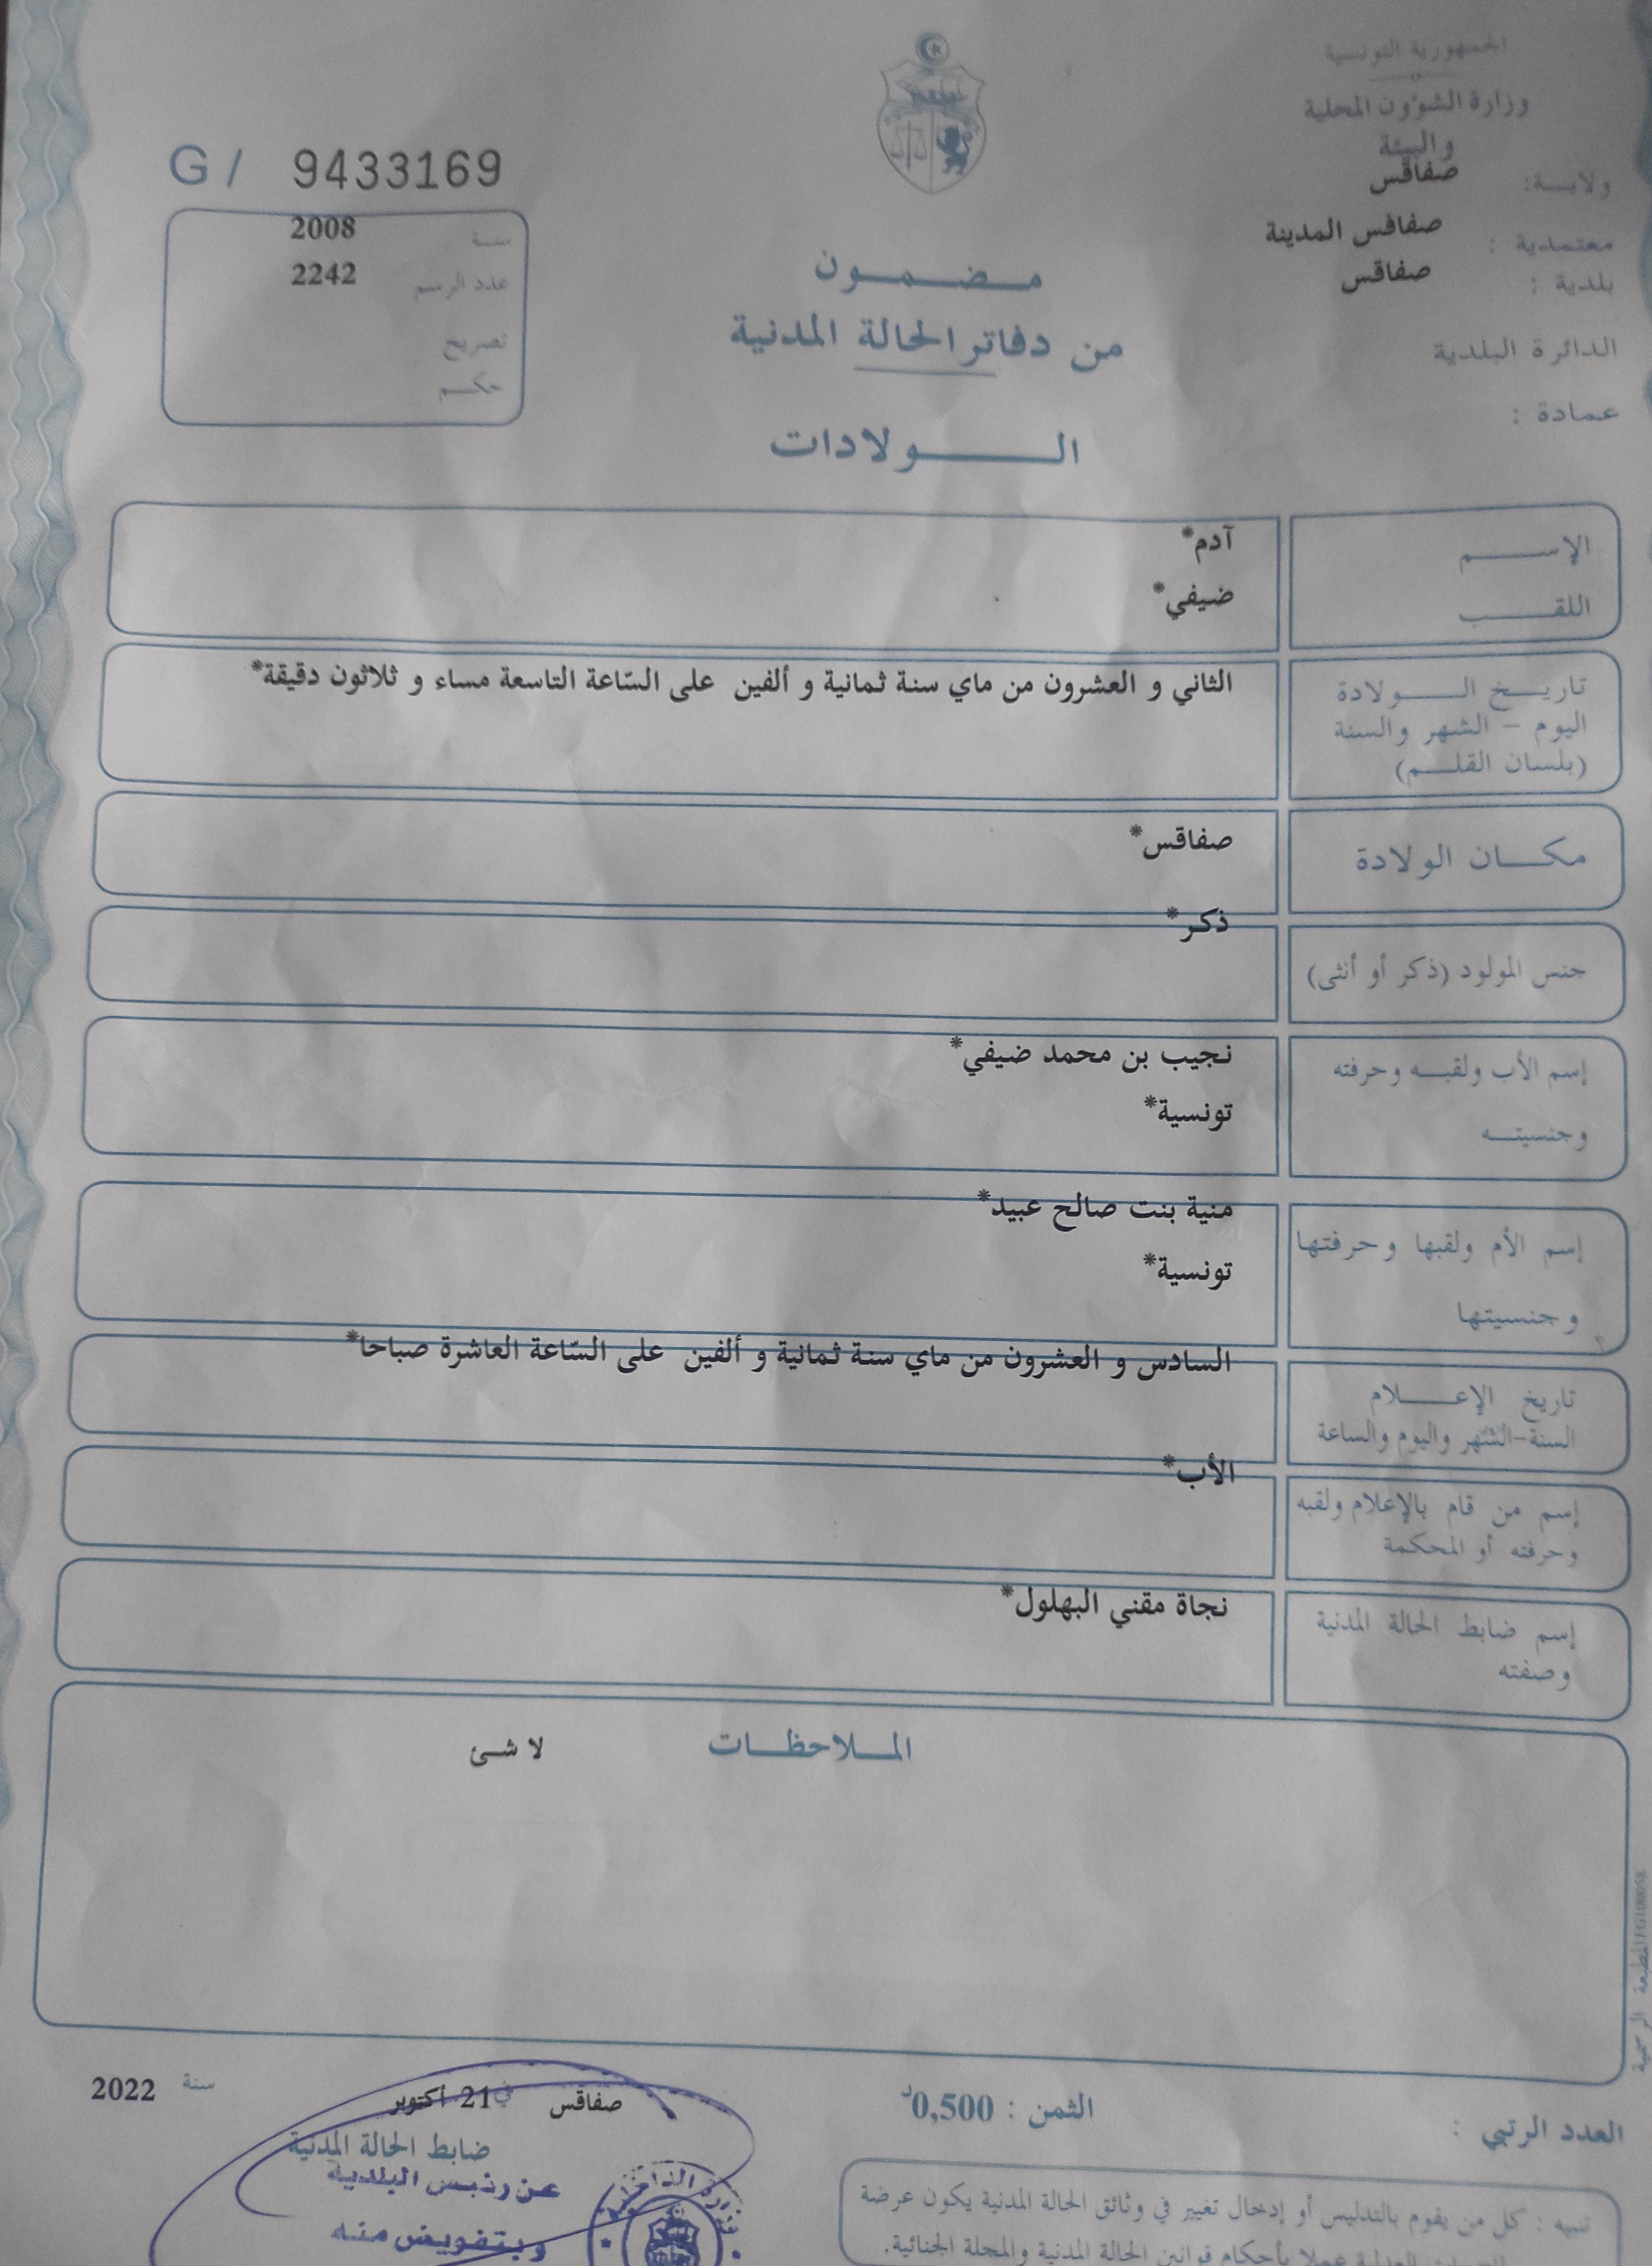 الجمهورية التونسية
وزارة الشؤون المحلية
والبيئة
ولايــة: صفاقس
معتمدية : صفاقس المدينة
بلدية : صفاقس
الدائرة البلدية
عمادة :
G / 9433169
سنة 2008
عدد الرسم 2242
تصريح
حكم
مضمون
من دفاتر الحالة المدنية
الولادات
الإسم آدم*
اللقب ضيفي*
تاريخ الولادة
اليوم – الشهر والسنة
(بلسان القلم)
الثاني و العشرون من ماي سنة ثمانية و ألفين على السّاعة التاسعة مساء و ثلاثون دقيقة*
مكان الولادة صفاقس*
جنس المولود (ذكر أو أنثى) ذكر*
إسم الأب ولقبه وحرفته نجيب بن محمد ضيفي*
وجنسيته تونسية*
إسم الأم ولقبها وحرفتها منية بنت صالح عبيد*
وجنسيتها تونسية*
تاريخ الإعلام
السنة-الشهر واليوم والساعة
السادس و العشرون من ماي سنة ثمانية و ألفين على السّاعة العاشرة صباحا*
إسم من قام بالإعلام ولقبه
وحرفته أو المحكمة
الأب*
إسم ضابط الحالة المدنية
وصفته
نجاة مقني البهلول*
الملاحظات لا شئ
المطبعة الرسمية
العدد الرتبي :
الثمن : 0,500د
صفاقس في 21 أكتوبر سنة 2022
ضابط الحالة المدنية
عن رئيس البلدية
وبتفويض منه
تنبيه : كل من يقوم بالتدليس أو إدخال تغيير في وثائق الحالة المدنية يكون عرضة
عملا بأحكام قوانين الحالة المدنية والمجلة الجنائية.